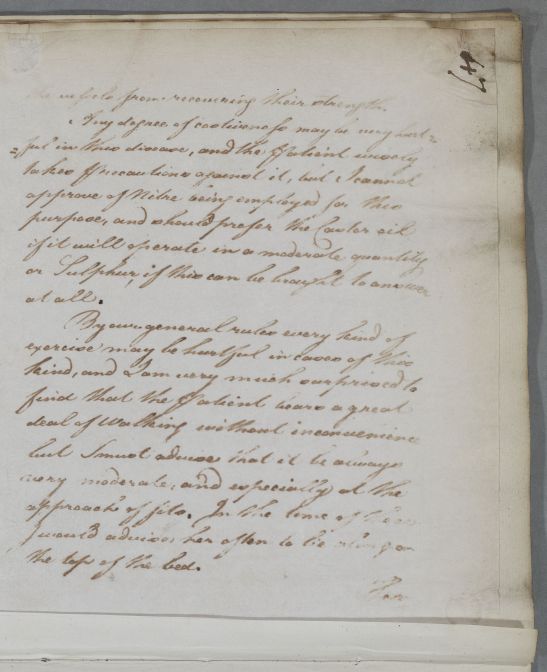 47
the vessels from recovering their strength.
Any degree of costiveness may be very hurt=
=ful in this disease, and the Patient wisely
takes Precautions against it, but I cannot
approve of Nitre being employed for this
purpose, and should prefer the Castor oil
if it will operate in a moderate quantity
or Sulphur, if this can be brought to answer
at all.
By our general rules every kind of
exercise may be hurtful in cases of this
kind, and I am very much surprised to
find that the Patient bears a great
deal of Walking without inconvenience
but I must advise that it be always
very moderate, and especially at the
approach of fits. In the time of these
I would advise her often to lie along on
the top of the bed.